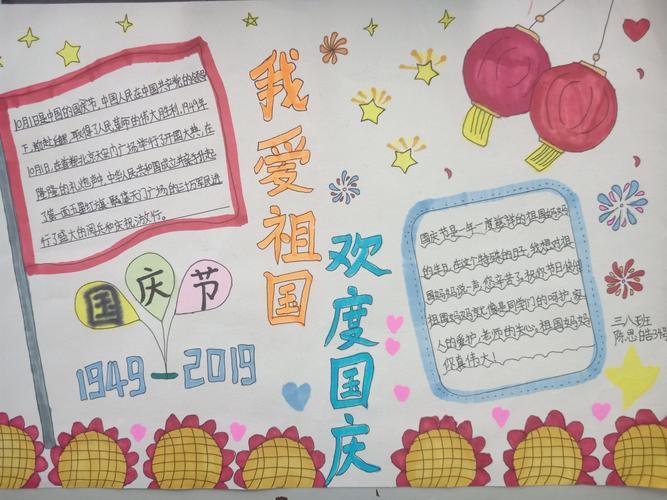 10月1日是中国的国庆节，中国人民在中国共产党的领导
下，前赴后继，取得了人民革命的伟大胜利，1949年
10月1日，在首都北京天安门广场举行了开国大典，在
隆隆的礼炮声中，中华人民共和国成立
了第一面五星红旗，广场的三十万军民进
行了盛大的阅兵和庆祝游行。
国庆节
1949 2019
我爱祖国
欢度国庆
国庆节是一年一度慈祥的祖国妈妈
的生日，在这个特殊的日子，我想对祖
国妈妈说一声：您辛苦了，祝你节日快乐
祖国妈妈就像是同学们的呵护，家
人的爱护，老师的关心，祖国妈妈
你真伟大！
三八班
陈思皓